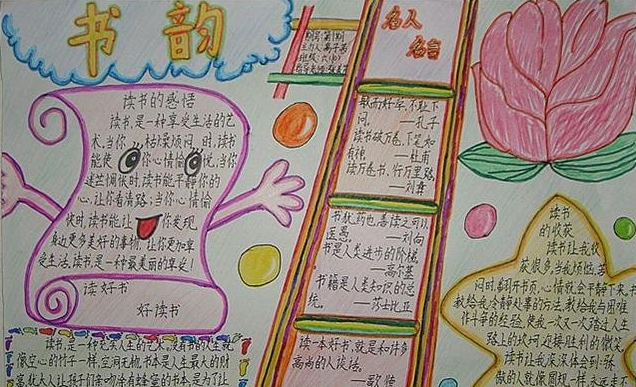 书韵
读书的感悟
读书,是一种享受生活的艺
术,当你枯燥烦闷时,读书
能使你心情愉悦,当你
迷茫惆怅时,读书能平静你的
心,让你看清路;当你心情愉
快时,读书能让你发现
身边更多美好的事物,让你更加享
受生活,读书是一种最美丽的享受!
读好书
好读书
读书,是一种充实人生的艺术,没有书的人生就
像空心的竹子一样,空洞无物,书本是人生最大的财
名人
名言
敏而好学,不耻下
问。 —孔子
读书破万卷,下笔如
有神 —杜甫
读万卷书,行万里路
—刘彝
书犹药也,善读之可以
医愚。 —刘向
书是人类进步的阶梯。
—高尔基
书籍是人类知识的总
统。 —莎士比亚
读一本好书,就是和许多
高尚的人谈话。
—歌德
读书
的收获
读书让我收
获很多,当我烦恼、苦
闷时,翻开书页,心情就会平静下来,书
教给我冷静处事的方法,教给我与困难
作斗争的经验,使我一次又一次踏过人生
路上的坎坷,迎接胜利的微笑
读书让我深深体会到:书